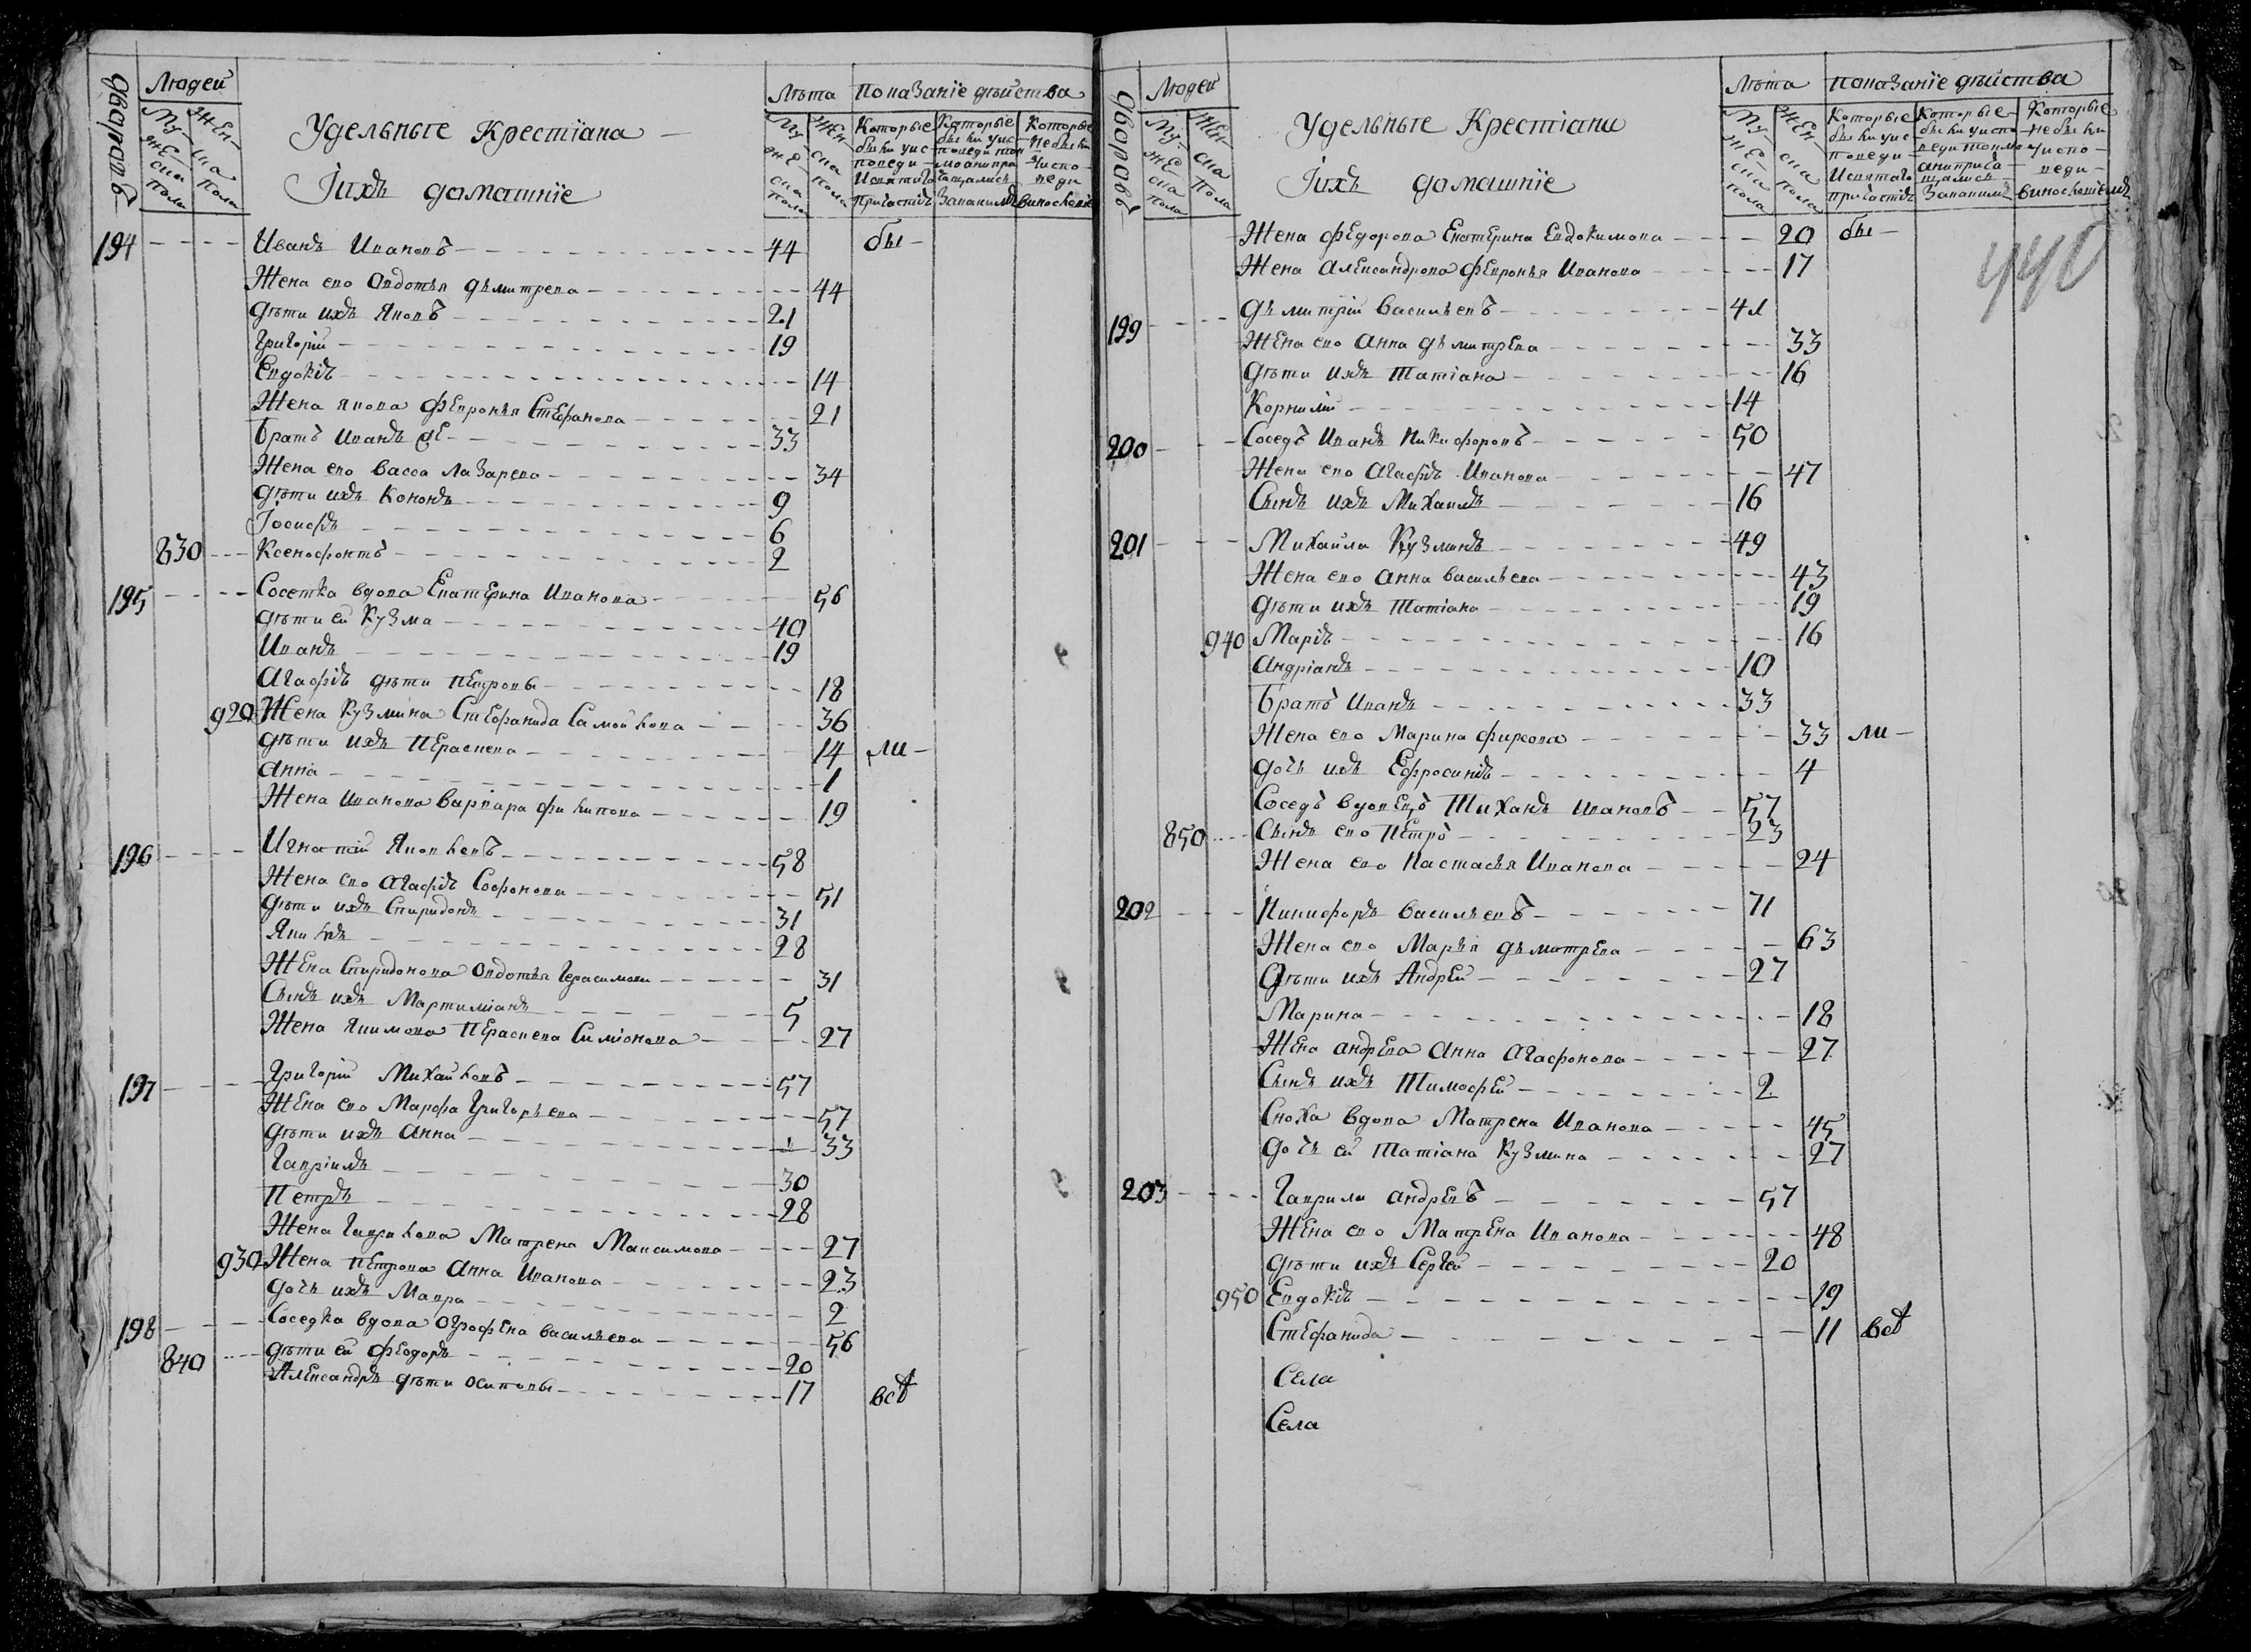 дваровъ
Людей
Мужеска пола
Женска пола
Удельные Крестiана
Iихъ домашнiе
Лѣта
Мужеска пола
Женска пола
Показанiе дѣйства
Которые были уисповеди и святаго причастiѣ
Которые были уисповеди токмо а не причащались
Которые не были у исповеди
194 Иванъ Ивановъ 44 бы-
Жена ево Авдотья Дѣмитрева 44
Дѣти ихъ Яковъ 21
Григорiй 19
Евдокiѣ 14
Жена Якова Февронья Стефанова 21
Братъ Иванъ же 33
Жена ево Васса Лазарева 34
Дѣти ихъ Кононъ 9
Iосифъ 6
830 Ксенофонтъ 2
195 Сосетка вдова Екатерина Иванова 56
Дѣти ей Кузма 40
Иванъ 19
Агафiѣ дѣти Петровы 18
920 Жена Кузмина Стефанида Самойлова 36
Дѣти ихъ Пераскева 14 ли-
Анна 1
Жена Иванова Варвара Филипова 19
196 Игнатiй Яковлевъ 58
Жена ево Агафiѣ Софонова 51
Дѣти ихъ Спиридонъ 31
Якимъ 28
Жена Спиридонова Овдотья Герасимова 31
Сынъ ихъ Мартимiанъ 5
Жена Якимова Пераскева Симiонова 27
197 Григорiй Михайловъ 57
Жена ево Марфа Григорьева 57
Дѣти ихъ Анна 33
Гаврiилъ 30
Петръ 28
Жена Гаврилова Матрена Максимова 27
930 Жена Петрова Анна Иванова 23
Дочь ихъ Мавра 2
198 Соседка вдова Ографена Васильева 56
840 Дѣти ей Феодоръ 20
Александръ дѣти Осиповы 17 всѣ
дваровъ
Людей
Мужеска пола
Женска пола
Удельныте Крестiани
Iихъ домашнiе
Лѣта
Мужеска пола
Женска пола
Показанiе дѣйства
440
Жена Федорова Екатерина Евдокимова 20 бы-
Жена Александрова Февронья Иванова 17
199 Дѣмитрiй Васильевъ 41
Жена ево Анна Дѣмитрева 33
Дѣти ихъ Татiана 16
Корнилiй 14
200 Соседъ Иванъ Никифоровъ 50
Жена ево Агафiѣ Иванова 47
Сынъ ихъ Михаилъ 16
201 Михайла Кузминъ 49
Жена ево Анна Васильева 43
Дѣти ихъ Татiана 19
940 Марiѣ 16
Андрiанъ 10
Братъ Иванъ 33
Жена ево Марина Фирсова 33 ли-
Дочь ихъ Ефросинiѣ 4
Соседъ вдовецъ Тиханъ Ивановъ 57
850 Сынъ ево Петръ 23
Жена ево Настасья Иванова 24
202 Никифоръ Васильевъ 71
Жена ево Марья Дѣмитрева 63
Дѣти ихъ Андрей 27
Марина 18
Жена Андрева Анна Агафонова 27
Сынъ ихъ Тимофей 2
Сноха вдова Матрена Иванова 45
Дочь ей Татiана Кузмина 27
203 Гаврила Андревъ 57
Жена ево Матрена Иванова 48
Дѣти ихъ Сергей 20
950 Евдокiѣ 19
Стефанида 11 всѣ
Села
Села